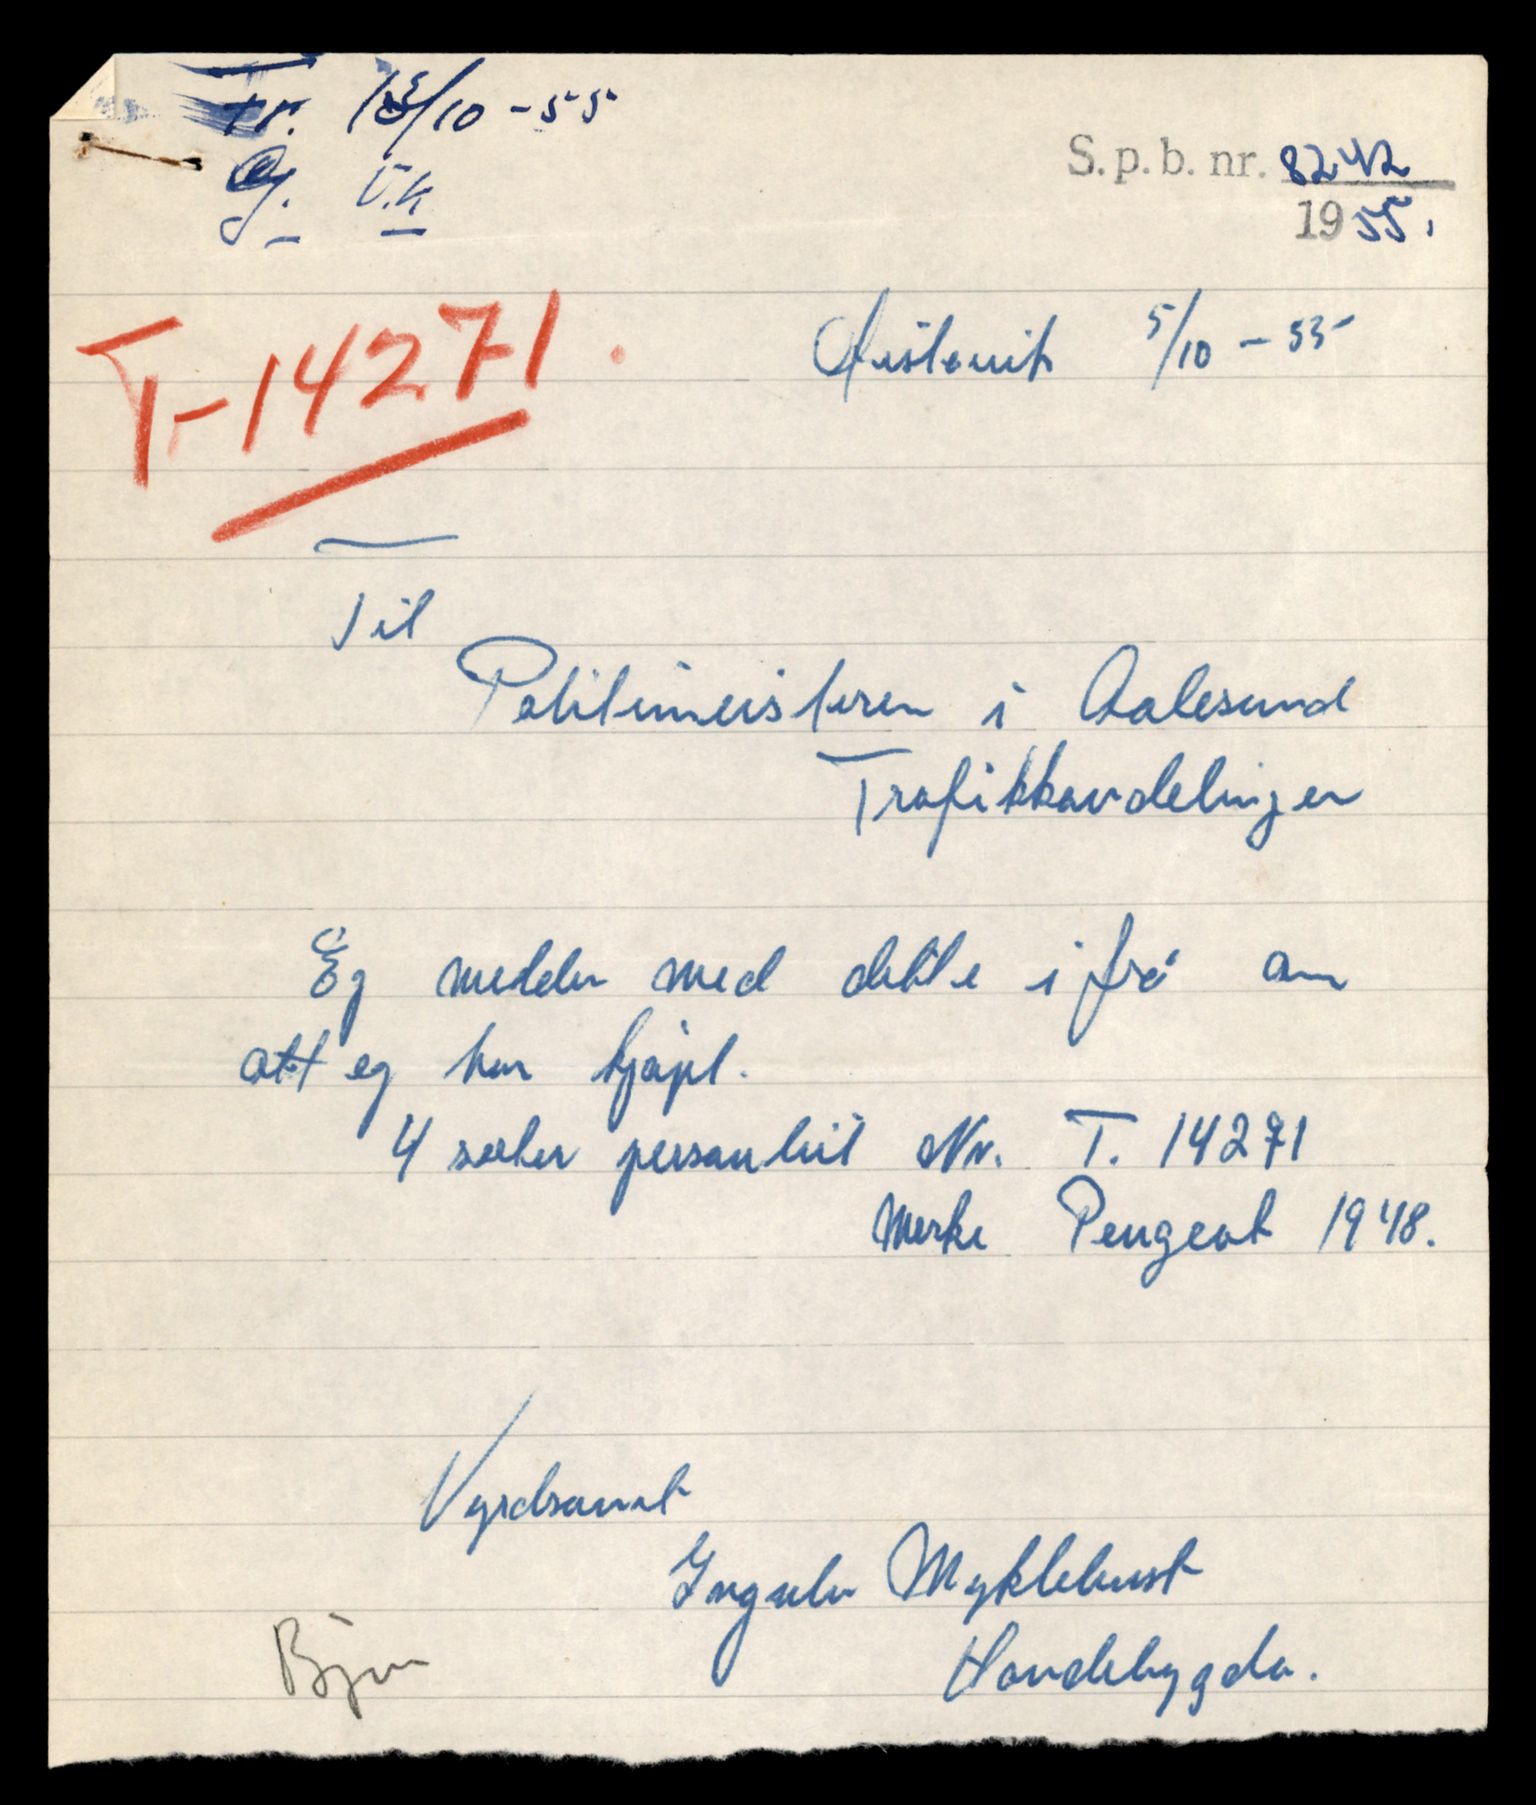 Tr. 13/10-55
S.p.b. nr. 8242
1955.
T-14271.
5/10-55
Til
Politimeisteren i Aalesund
Trafikkavdelingen
Eg melder med dette i frå om
att eg har kjøpt.
4 seter personbil Nr. T. 14271
Merke Peugeot 1948.
Vyrdsamt
Ingulv Myklebust
Hovdebygda.